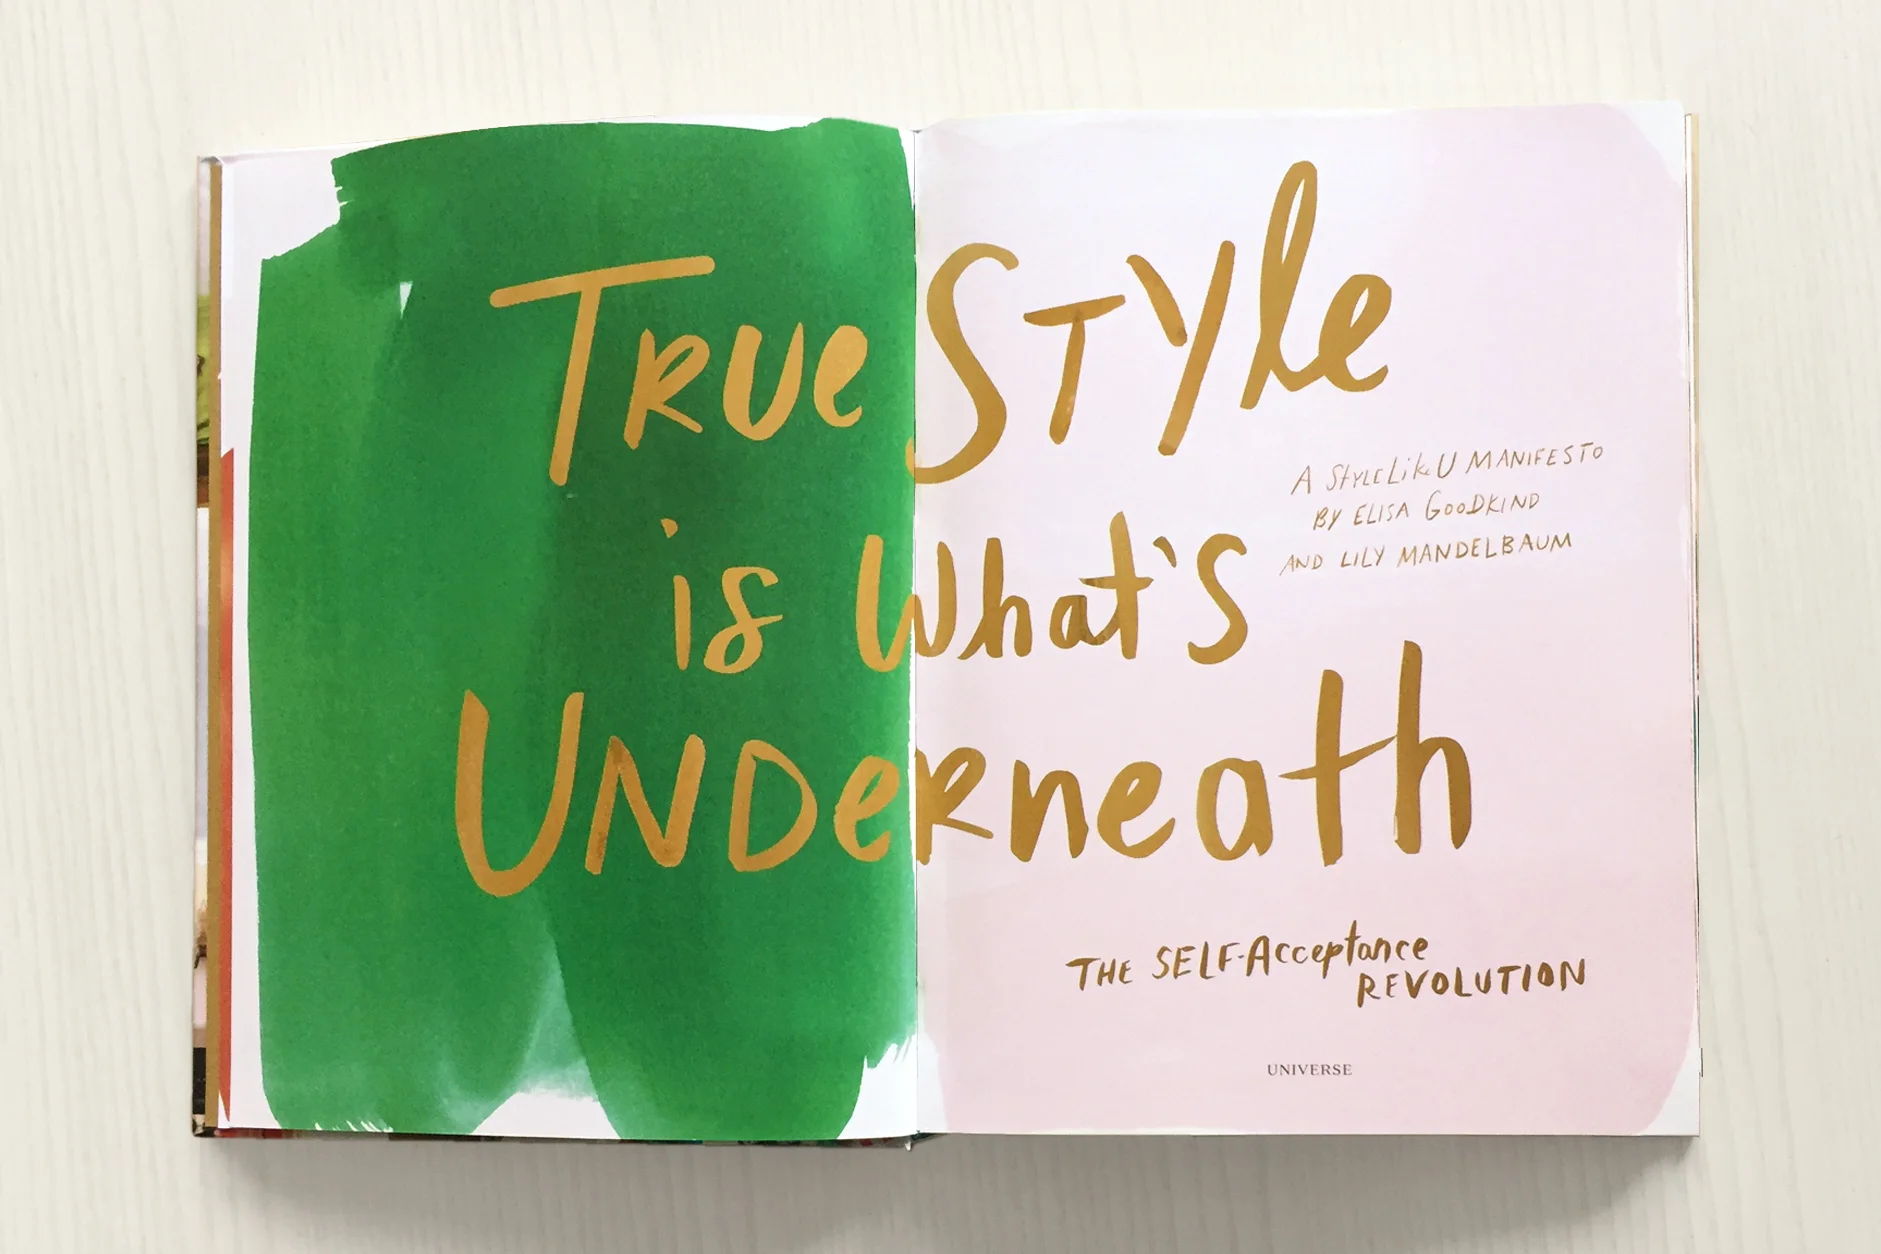 TRUE STYLE
is What's
UNDERneath
A STYLELikeU MANIFESTO
BY ELISA GOODKIND
AND LILY MANDELBAUM
THE SELF-Acceptance
REVOLUTION
UNIVERSE